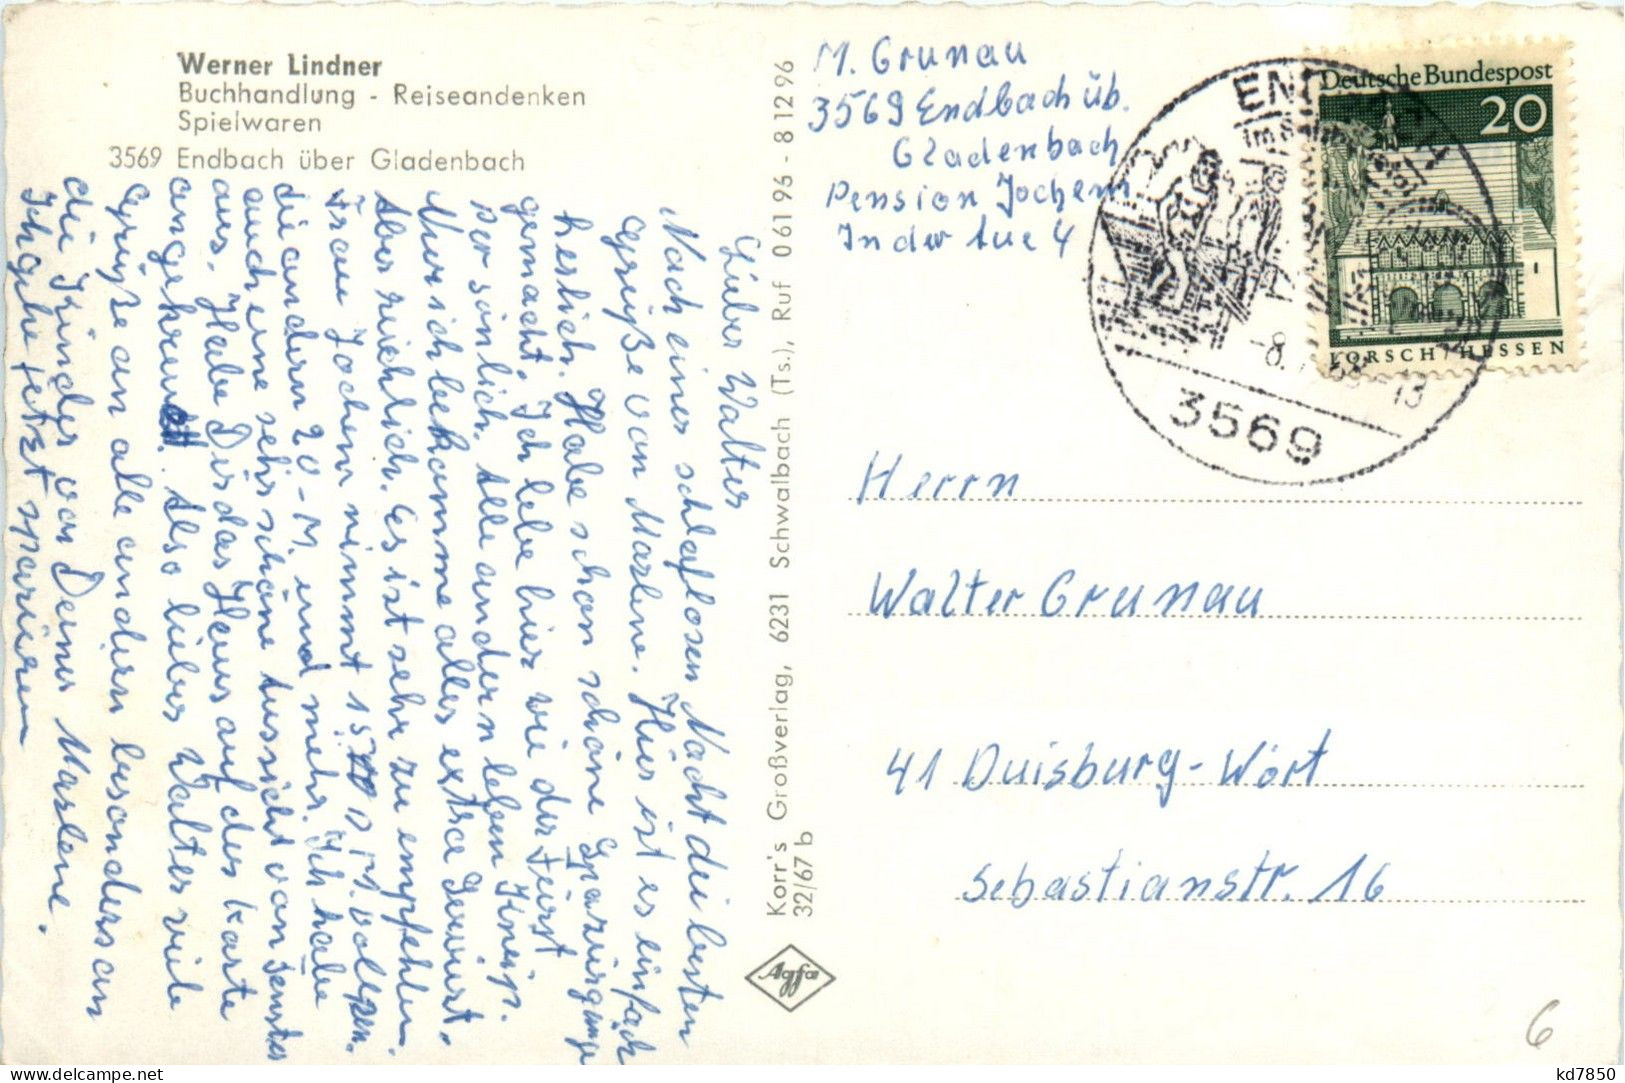 Werner Lindner
Buchhandlung - Reiseandenken
Spielwaren
3569 Endbach über Gladenbach
M. Grunau
3569 Endbach üb.
Gladenbach
Pension Jochem
In der Aue 4
Deutsche Bundespost
20
LORSCH/HESSEN
3569
Lieber Walter
Nach einer schlaflosen Nacht die besten
Grüße von Marlene. Hier ist es einfach
herlich. Habe schon schöne Spaziergänge
gemacht. Ich lebe hier wie der Fürst
persönlich. Alle andern leben Kneip.
Nur ich bekomme alles extra Serviert.
Aber reichlich. Es ist sehr zu empfehlen.
Frau Jochem nimmt 15 D.M. vollpen.
die andern 20-M. und mehr. Ich habe
auch eine sehr schöne Aussicht von Fenster
aus. Habe Dir das Haus auf der Karte
angekreutzt. Also lieber Walter viele
Grüße an alle andern besonders an
die Kinder von Deiner Marlene.
Ich gehe jetzt spazieren
Korr's Großverlag, 6231 Schwalbach (Ts.), Ruf 06196-81296
32/67 b
Agfa
Herrn
Walter Grunau
41 Duisburg-Wört
Sebastianstr. 16
6
www.delcampe.net
kd7850